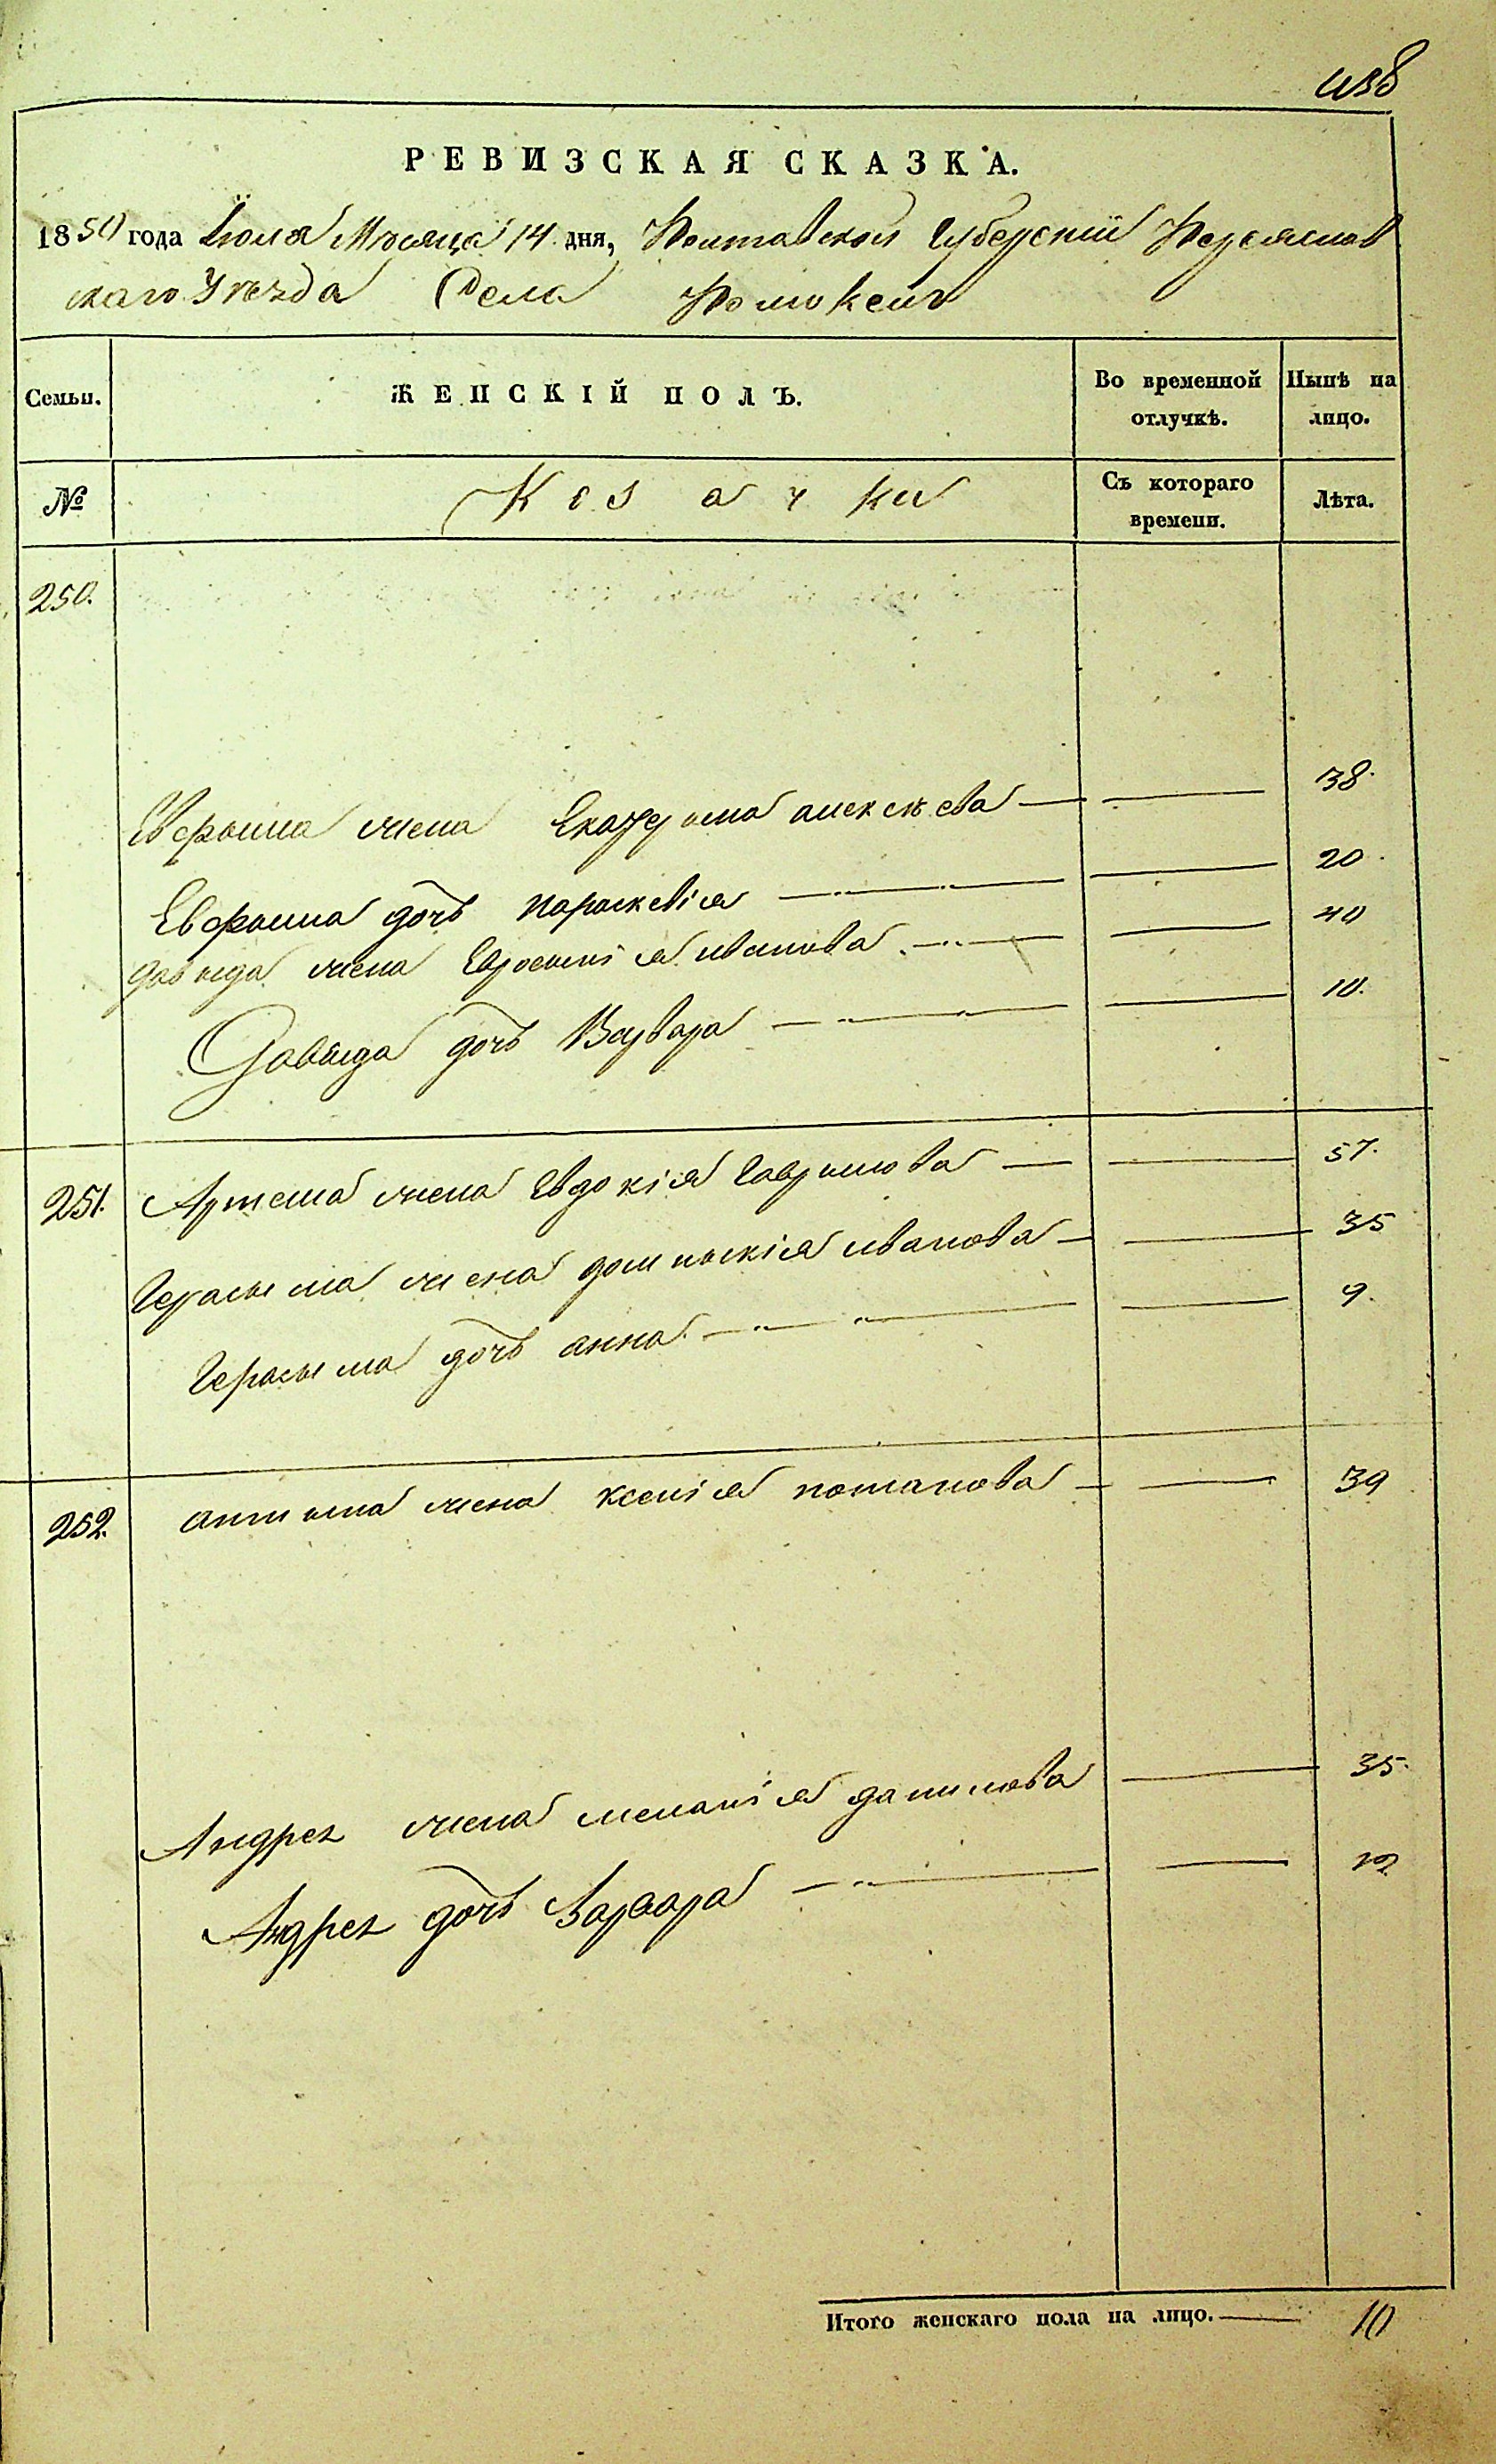 РЕВИЗСКАЯ СКАЗКА.
1850 года Іюля Мѣсяца 14 дня, Полтавской Губерніи Переяслав
скаго Уѣзда Села
Семьи. ЖЕНСКІЙ ПОЛЪ. Во временной отлучкѣ. Нынѣ на лицо.
№ Козачки Съ котораго времени. Лѣта.
250.
жена Екатерина алексѣева — — 38.
дочь параскевія — — 20.
давида жена Евросинія иванова — — 40
Давида дочь Варвара — — 10.
251. Артема жена Евдокія Гаврилова — — 57.
Герасыма жена домникія иванова — — 35
Герасыма дочь анна — — 9.
252. антипа жена ксенія потапова — — 39
Андрея жена меланія данилова — 35.
Андрея дочь Варвара — — 12
Итого женскаго пола на лицо. — 10